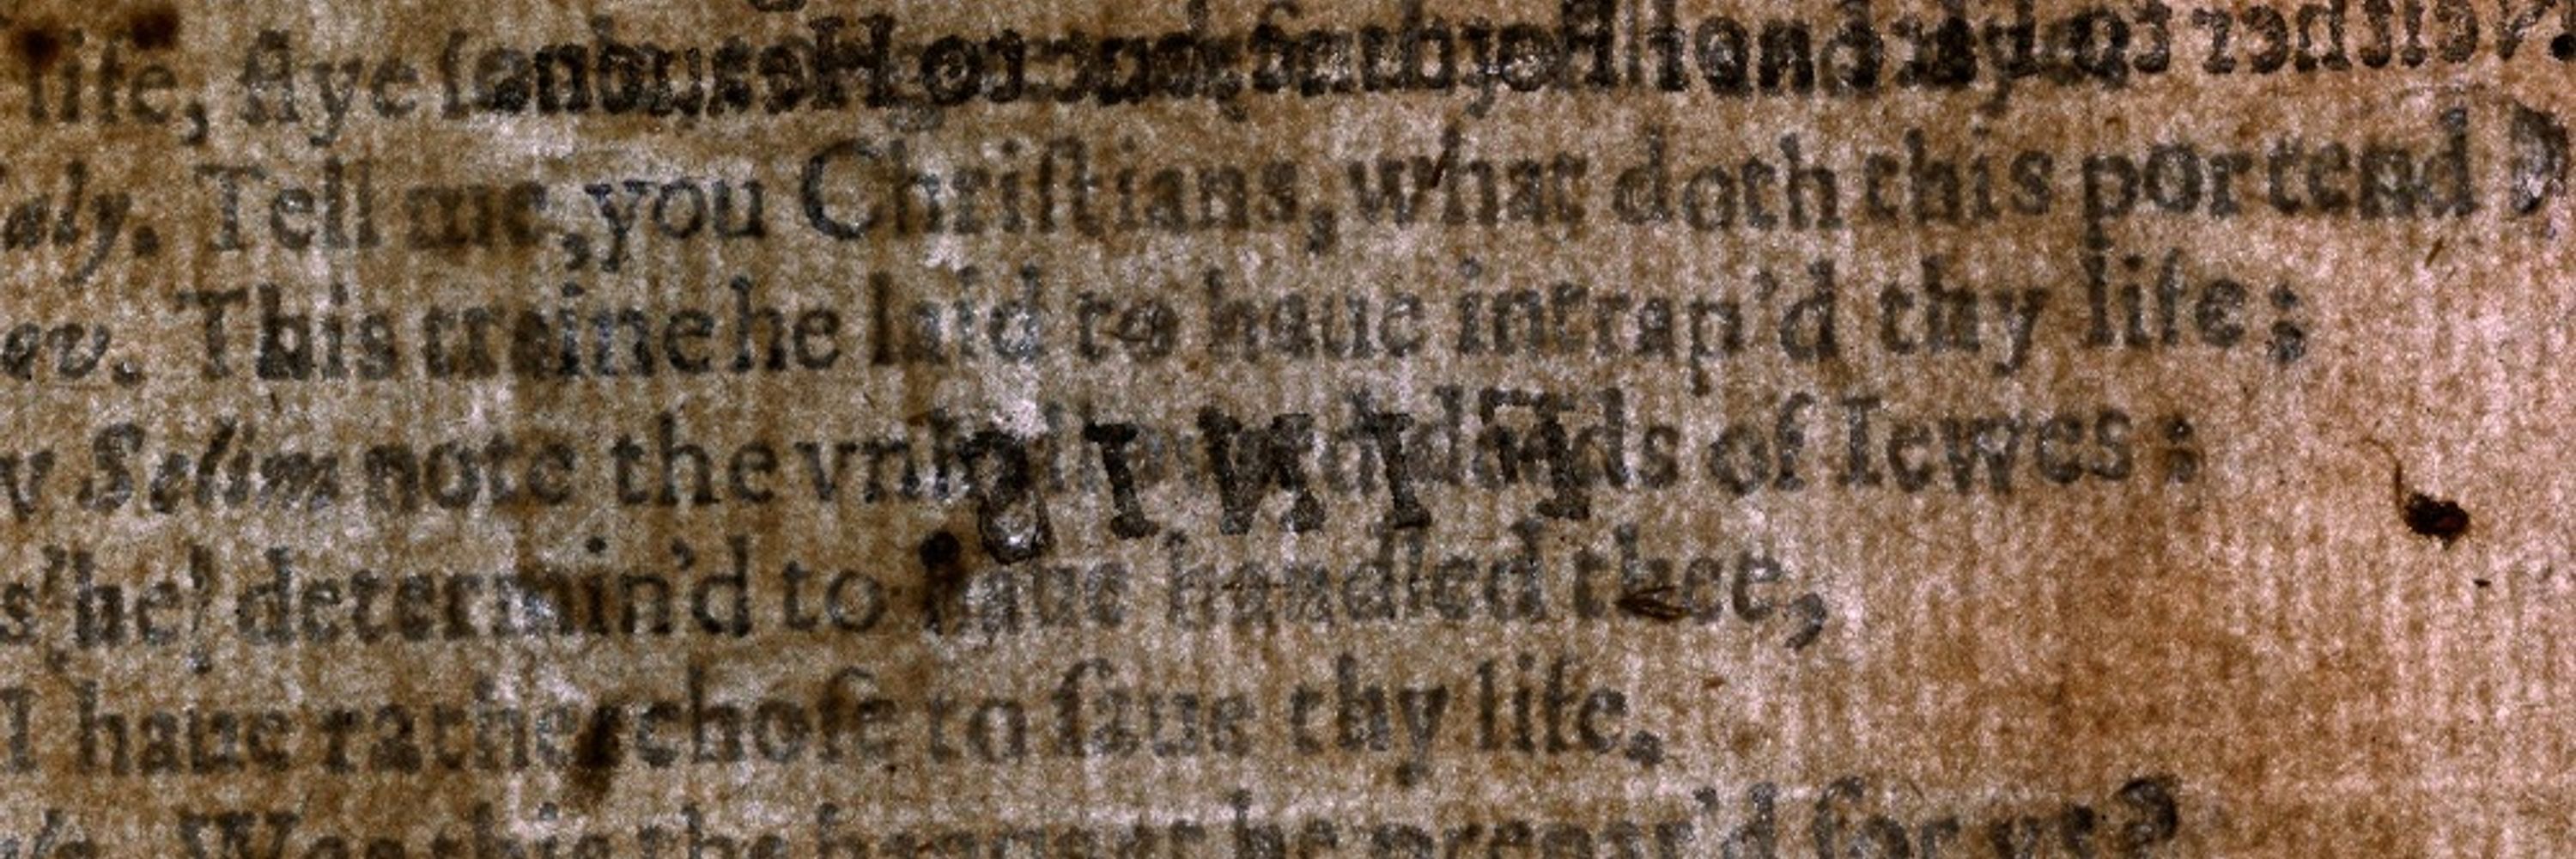 life, flye
aly. Tell me, you Chriſtians, what doth this portend?
ov. This traine he laid to haue intrap'd thy life;
v Selim note the vnhallowed deeds of Iewes:
s he determin'd to haue handled thee,
I haue rather choſe to ſaue thy life.
Was this the banquet he prepar'd for vs?
FINIS